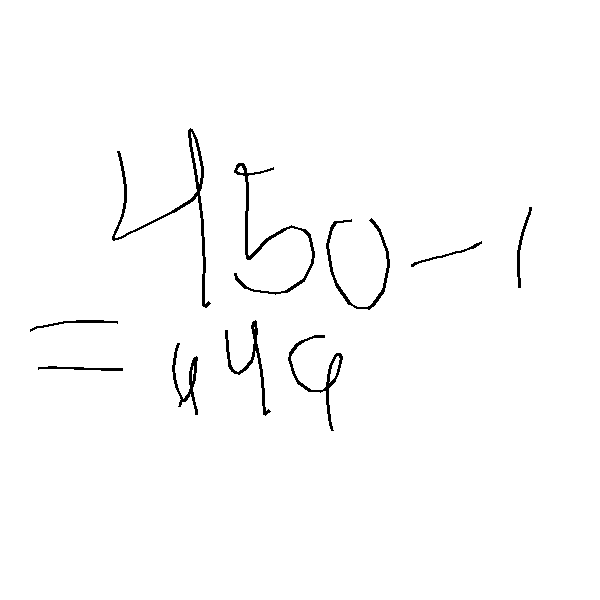 450-1
=449